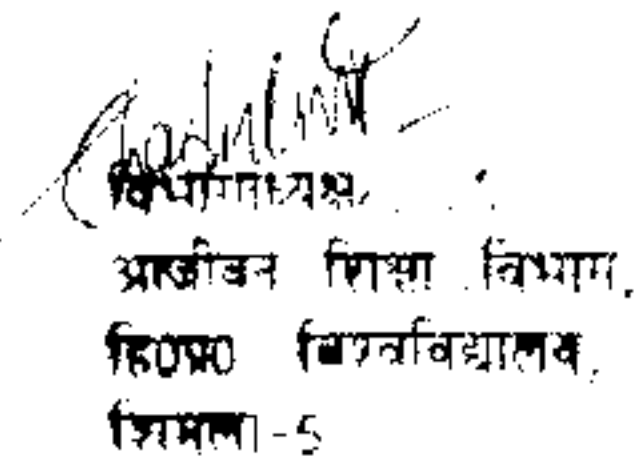 विभागाध्यक्ष,
आजीवन शिक्षा विभाग,
हि0प्र0 विश्वविद्यालय,
शिमला-5